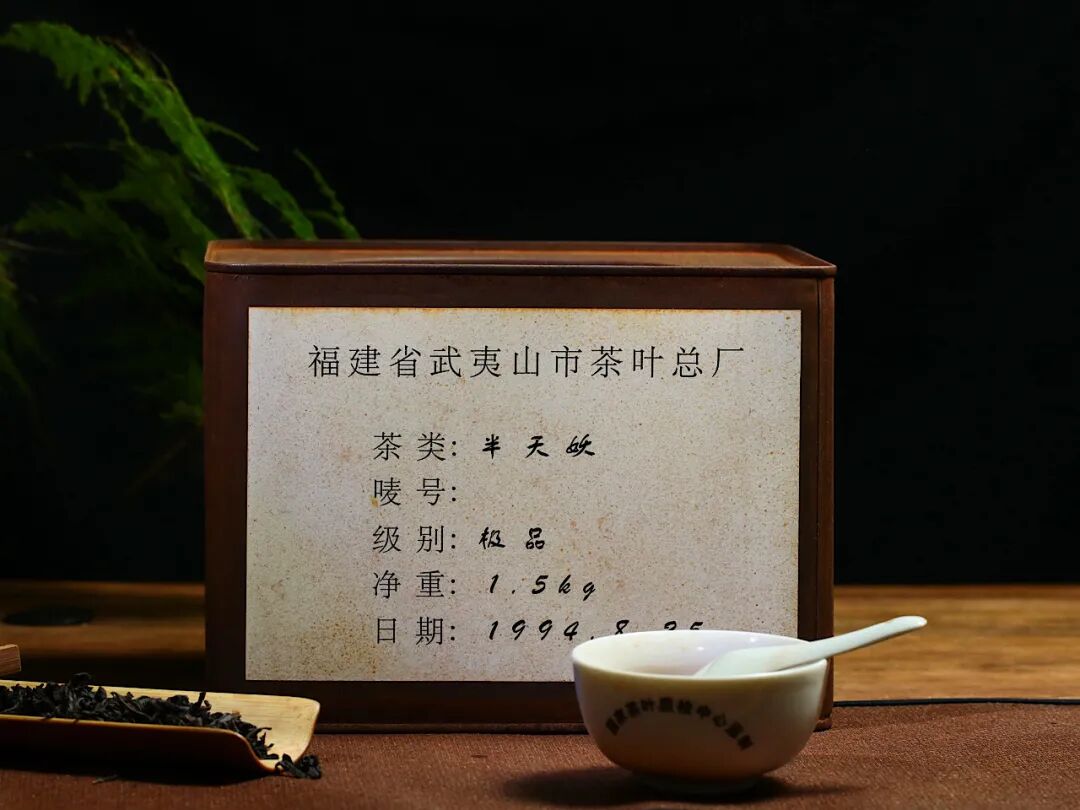 福建省武夷山市茶叶总厂
茶类: 半天妖
唛号:
级别: 极品
净重: 1.5kg
日期: 1994.8.25
国家茶叶质检中心监制